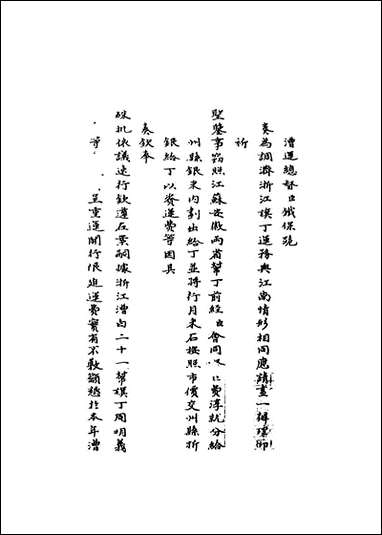 漕運總督臣鐵保跪
奏為調濟浙江旗丁運務與江南情形相同應請畫一辦理仰
祈
聖鑒事竊照江蘇安徽兩省幫丁前經臣會同 費淳就分給
州縣銀米內劃出給丁並將行月米石按照市價交州縣折
銀給丁以資運費等因具
奏欽奉
硃批依議速行欽遵在案嗣據浙江漕白二十一幫旗丁周明義
等 呈重運開行限迫運費實有不敷籲懇於本年漕